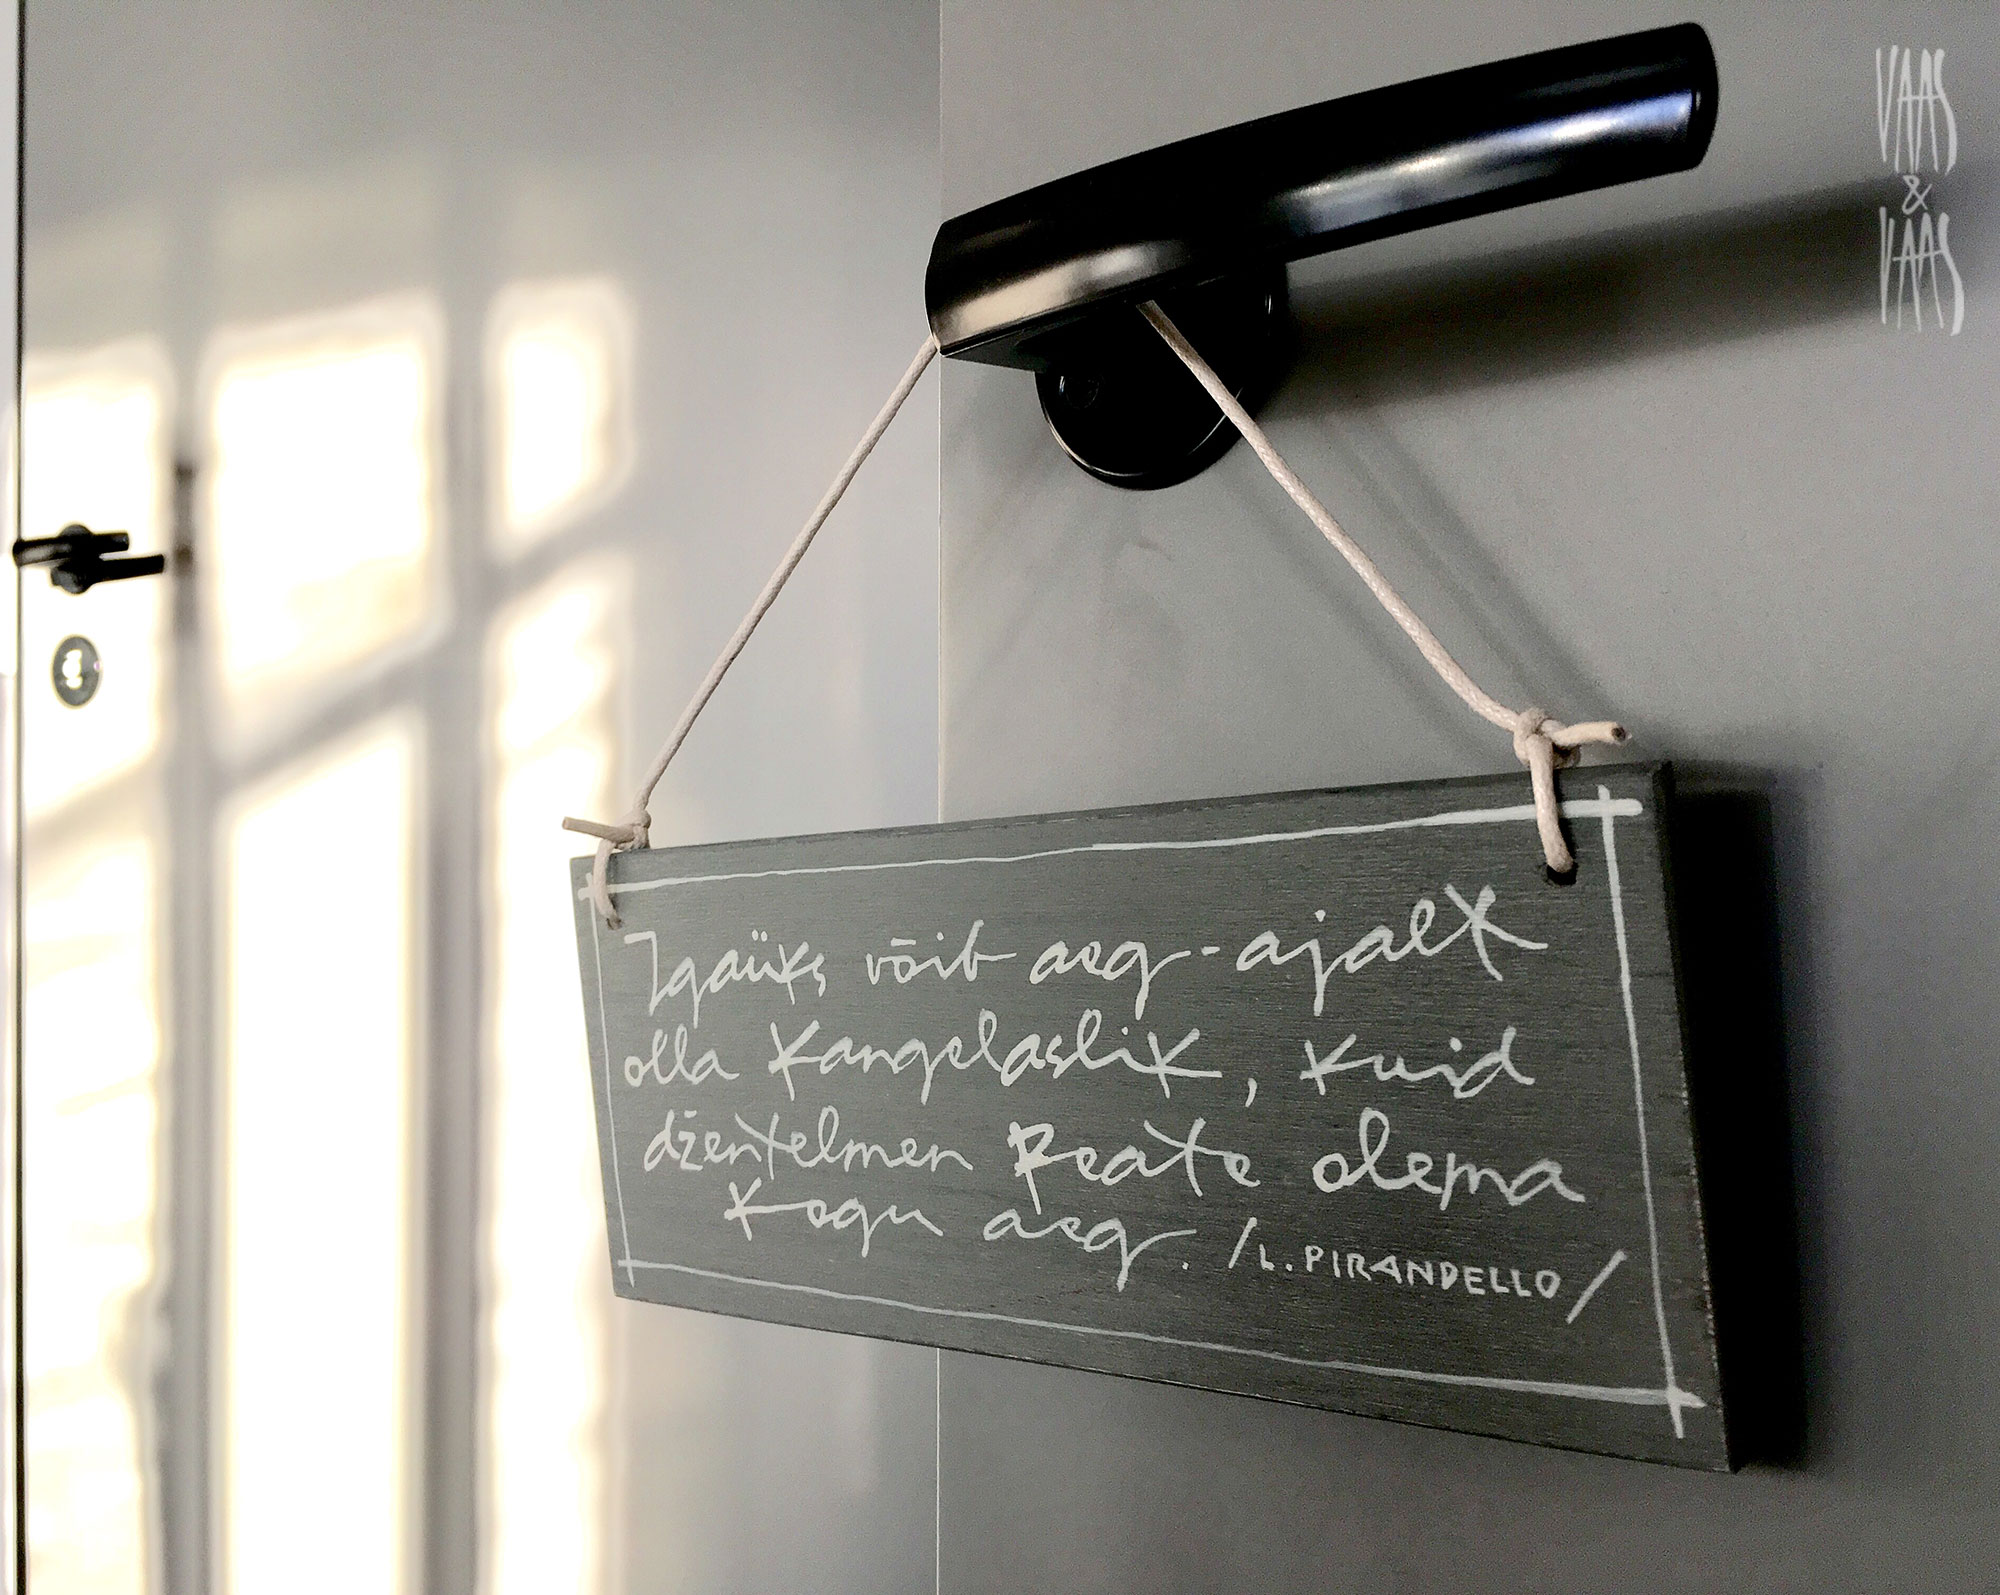 Igaüks võib aeg-ajalt
olla kangelaslik, kuid
džentelmen peate olema
kogu aeg. /L. PIRANDELLO/
VAAS
&
VAAS